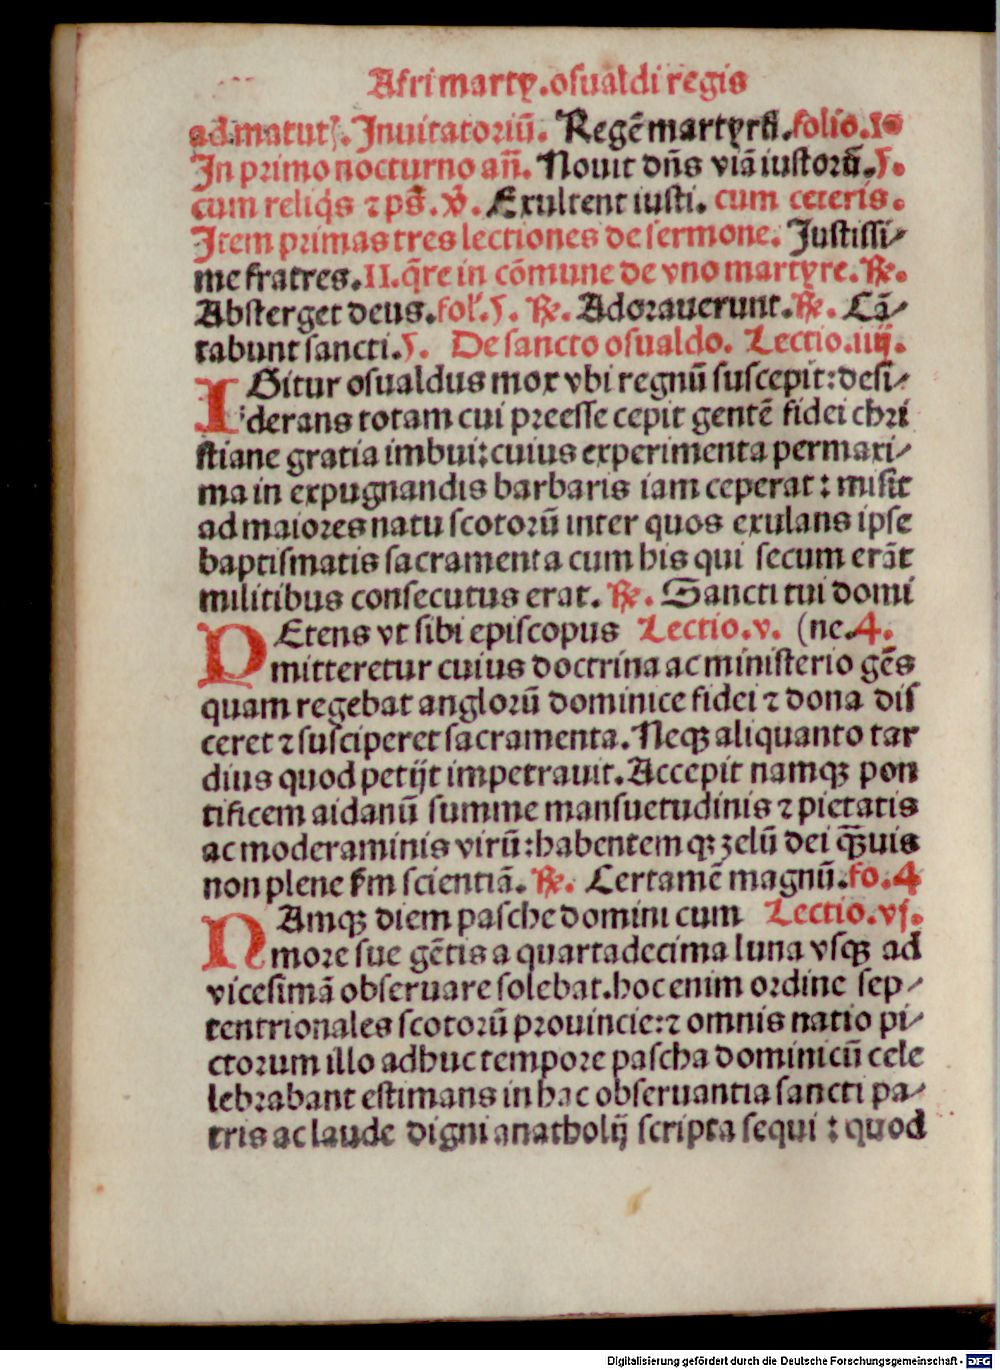 Afri marty. osualdi regis
ad matut. Inuitatoriū. Regē martyrū. folio.10
In primo nocturno an̄. Nouit dn̄s viā iustorū. 5.
cum reliq̄s ⁊ ps̄. v̄. Exultent iusti. cum ceteris.
Item primas tres lectiones de sermone. Iustissi⸗
me fratres. II. q̄re in cōmune de vno martyre. ℞.
Absterget deus. fol. 5. ℞. Adorauerunt. ℞. Cā⸗
tabunt sancti. 5. De sancto osualdo. Lectio. iiij.
IGitur osualdus mox vbi regnū suscepit: desi⸗
derans totam cui preesse cepit gentē fidei chri
stiane gratia imbui: cuius experimenta permaxi⸗
ma in expugnandis barbaris iam ceperat: misit
ad maiores natu scotorū inter quos exulans ipse
baptismatis sacramenta cum his qui secum erāt
militibus consecutus erat. ℞. Sancti tui domi
PEtens vt sibi episcopus Lectio. v. (ne. 4.
mitteretur cuius doctrina ac ministerio gēs
quam regebat anglorū dominice fidei ⁊ dona dis
ceret ⁊ susciperet sacramenta. Neqꝫ aliquanto tar
dius quod petijt impetrauit. Accepit namqꝫ pon
tificem aidanū summe mansuetudinis ⁊ pietatis
ac moderaminis virū: habentem qꝫ zelū dei q̄ꝫuis
non plene s̄m scientiā. ℞. Certamē magnū. fo. 4
NAmqꝫ diem pasche domini cum Lectio. vj.
more sue gētis a quartadecima luna vsqꝫ ad
vicesimā obseruare solebat. hoc enim ordine sep⸗
tentrionales scotorū prouincie: ⁊ omnis natio pi⸗
ctorum illo adhuc tempore pascha dominicū cele
lebrabant estimans in hac obseruantia sancti pa⸗
tris ac laude digni anatholij scripta sequi: quod
Digitalisierung gefördert durch die Deutsche Forschungsgemeinschaft - DFG